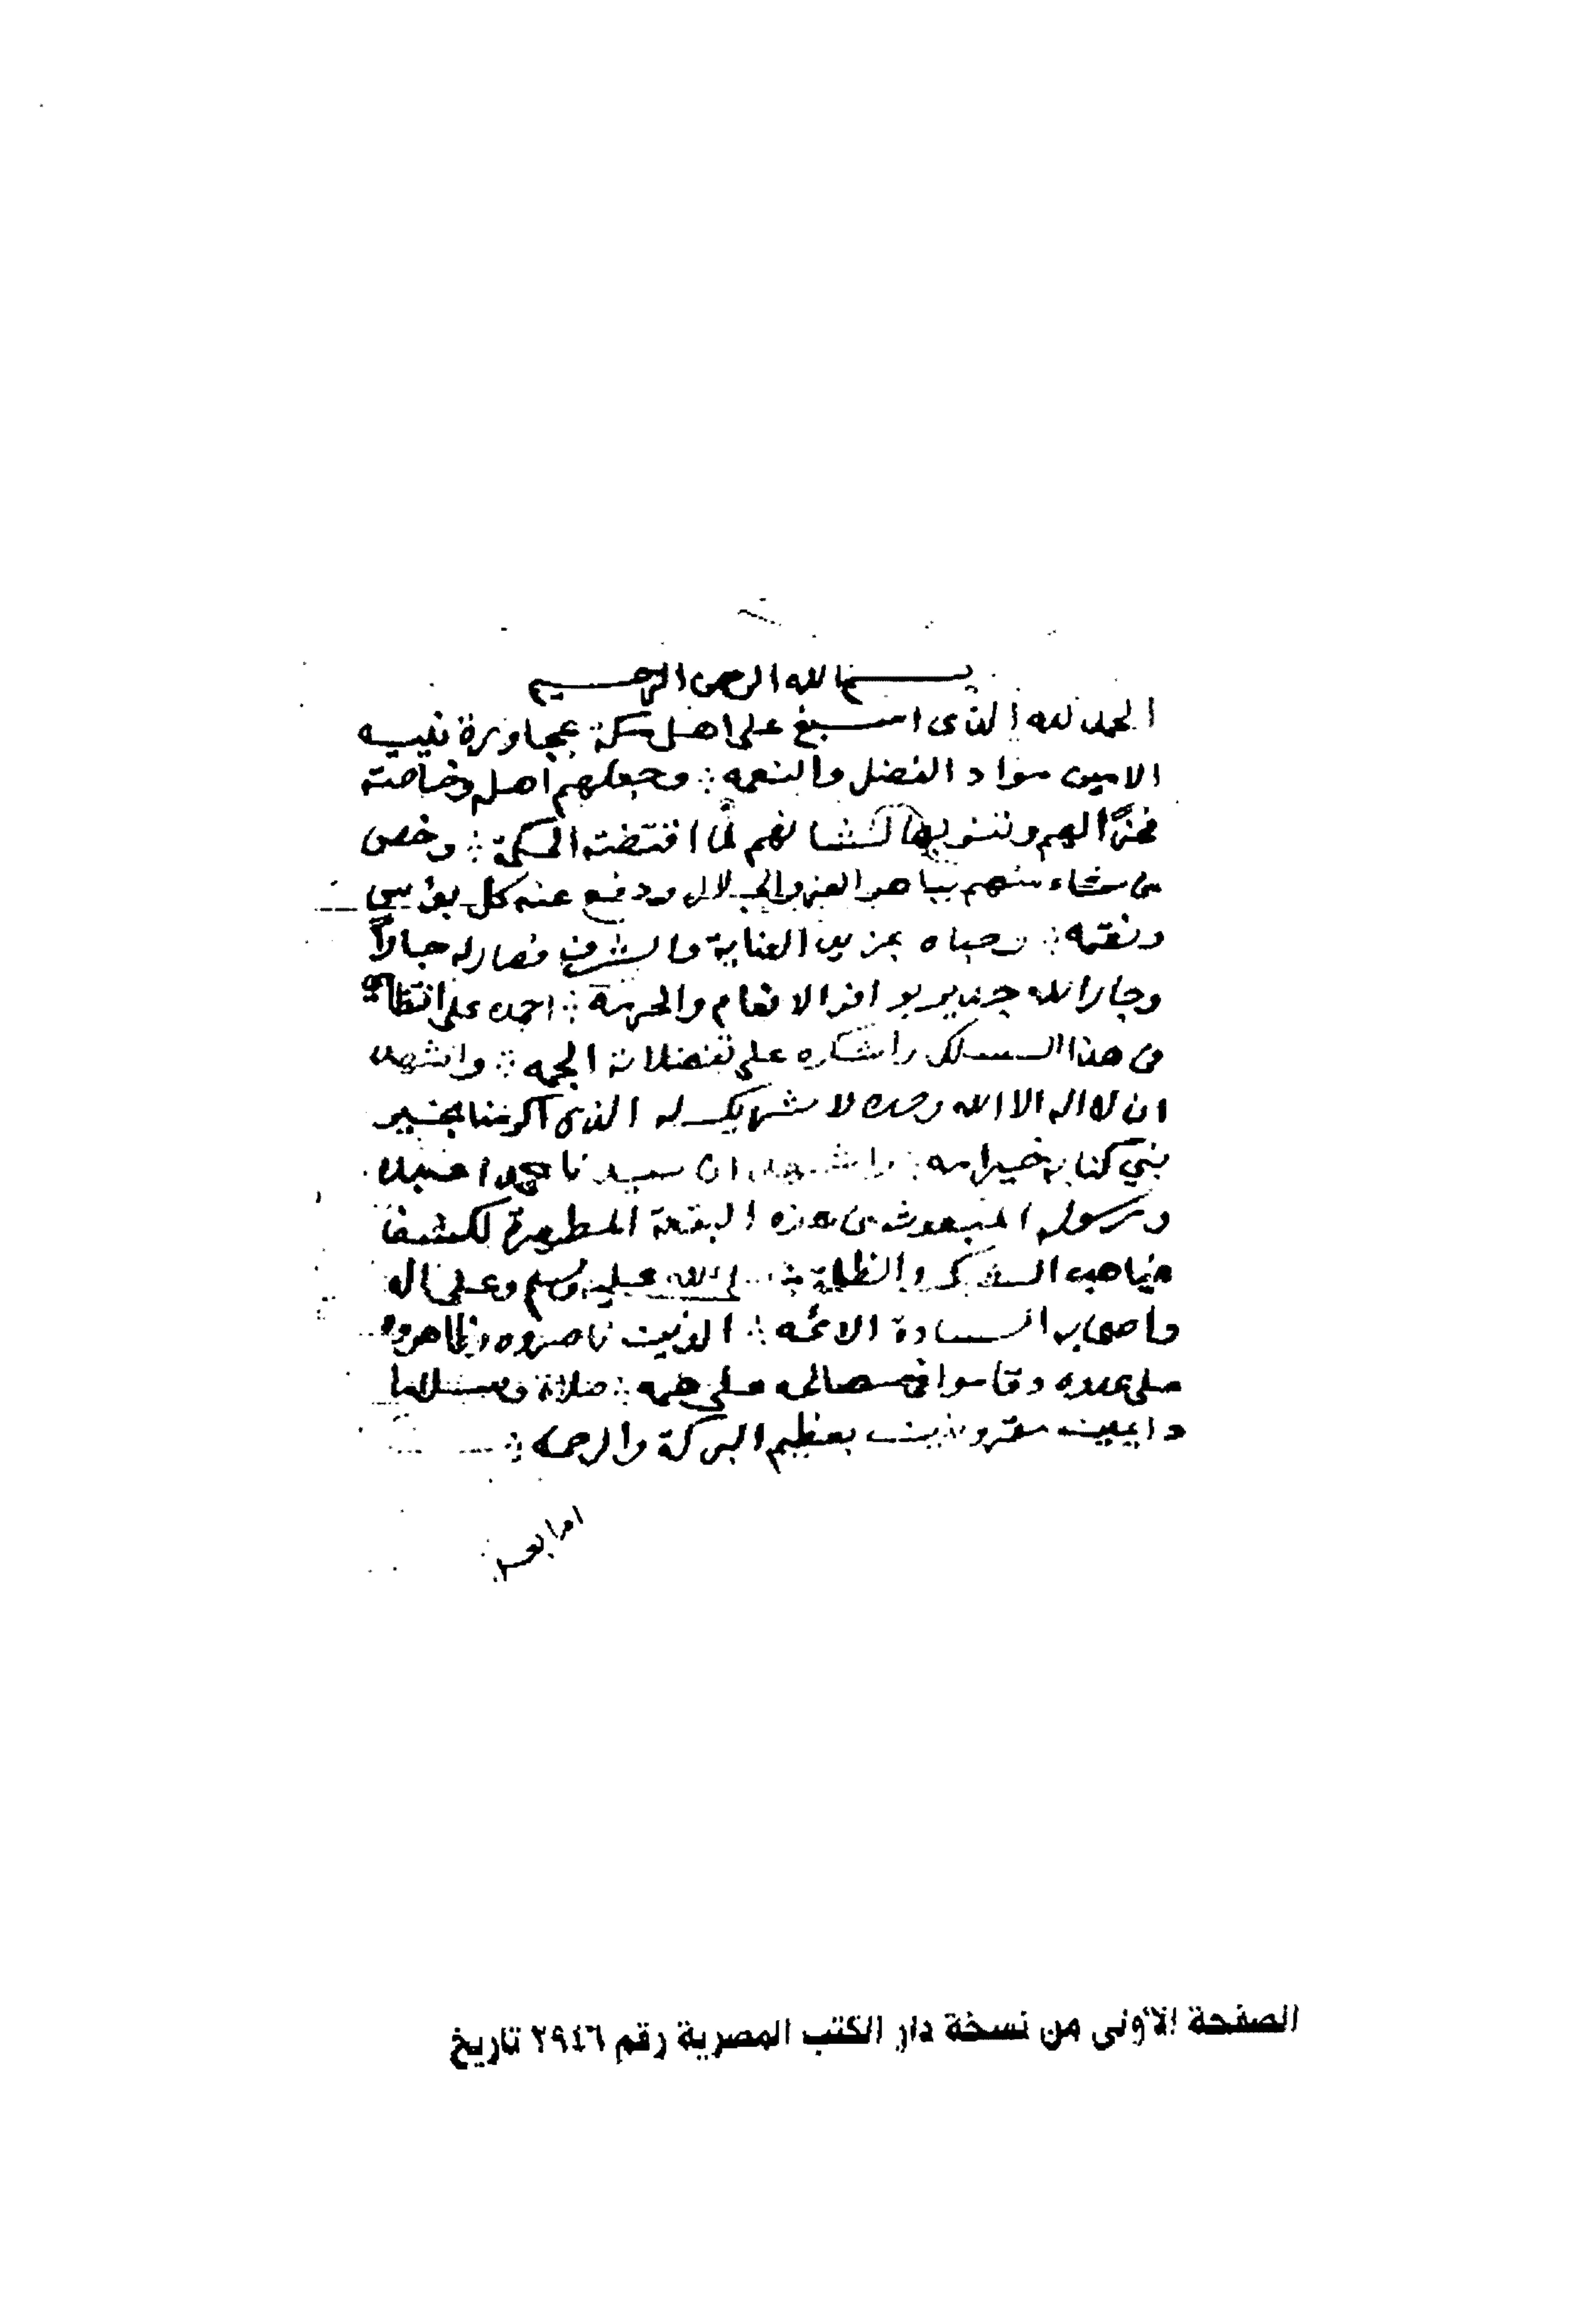 بسم الله الرحمن الرحيم
الحمد لله الذى اسبغ على اهل مكة بمجاورة نبيه
الامين مواد الفضل والنعمه وجعلهم اهل وخاصته
فخرًا لهم وتنويها لشانهم لما اقتضته الحكمة وخص
من شاء منهم بباهر العز والجلال ودفع عنه كل بؤس
ونقمه وحباه بمزيد العناية والشرف فصار له جارًا
وجار الله جدير بوافر الانعام والحرمة احمده على
من هذا المسلك واشكره على تفضلاته الجمه واشهد
ان لا اله الا الله وحده لا شريك له الذى اكرمنا بخير
نبي كنا به خير امه واشهد ان سيدنا محمدا عبده
ورسوله المبعوث من هذه البقعة المطهرة لكشف
غياهب الشرك والظلمة صلى الله عليه وسلم وعلى اله
واصحابه السادة الائمه الذين ناصروه وظاهروه
على عدوه وقاموا فى مصالحه على همه صلاة وسلاما
دايمين مقرونين بعظيم البركة والرحمه
اما بعد
الصفحة الأولى من نسخة دار الكتب المصرية رقم ٢٩٤٦ تاريخ